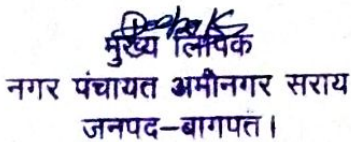 मुख्य लिपिक
नगर पंचायत अमीनगर सराय
जनपद–बागपत।